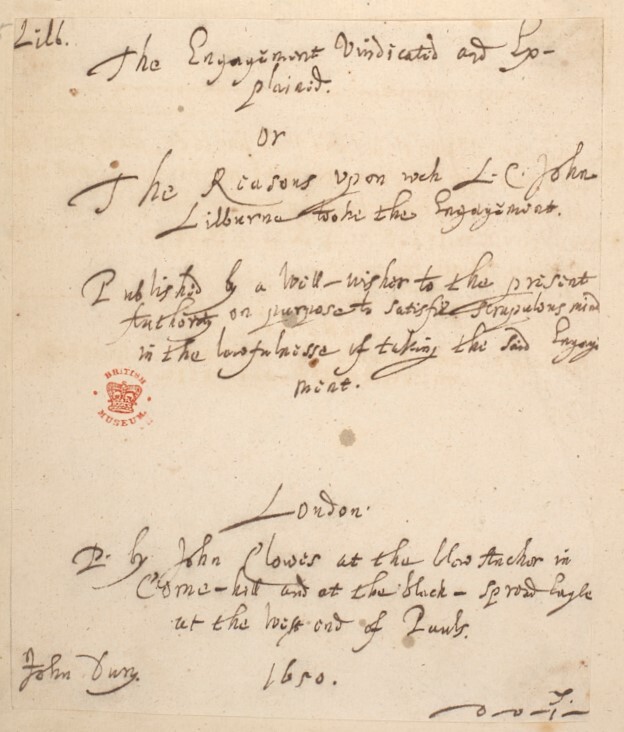 Lilb.
The Engagement Vindicated and Ex-
plained.
Or
The Reasons upon wch L. C. John
Lilburne tooke the Engagement.
Published by a Well-wisher to the present
Authority on purpose to satisfie scrupulous mind
in the lawfulnesse of taking the said Engage
ment.
BRITISH
MUSEUM
London.
P. by John Clowes at the blew Anchor in
Corne-hill and at the black-spread Eagle
at the West end of Pauls.
John Dury. 1650.